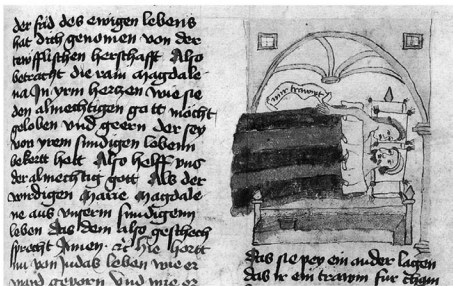 der frid des ewigen lebens
hat dich genomen von der
tewfflischen herschafft Also
betracht die rain magdale
na Jn yrm hertzen wie sie
den almechtigen gott möcht
geloben vnd geern der sey
von yrem sundigen lebenn
bekertt hatt Also helff vns
der almechtig gott Als der
wirdigen Marie Magdale
ne aus vnserm sundigenn
leben das dem also geschech
sprecht Amen. Hie hortt
nu von Judas leben wie er
ward geporn Vnd wie er
das sie pey ein ander lagen
das ir ein trawm fur cham